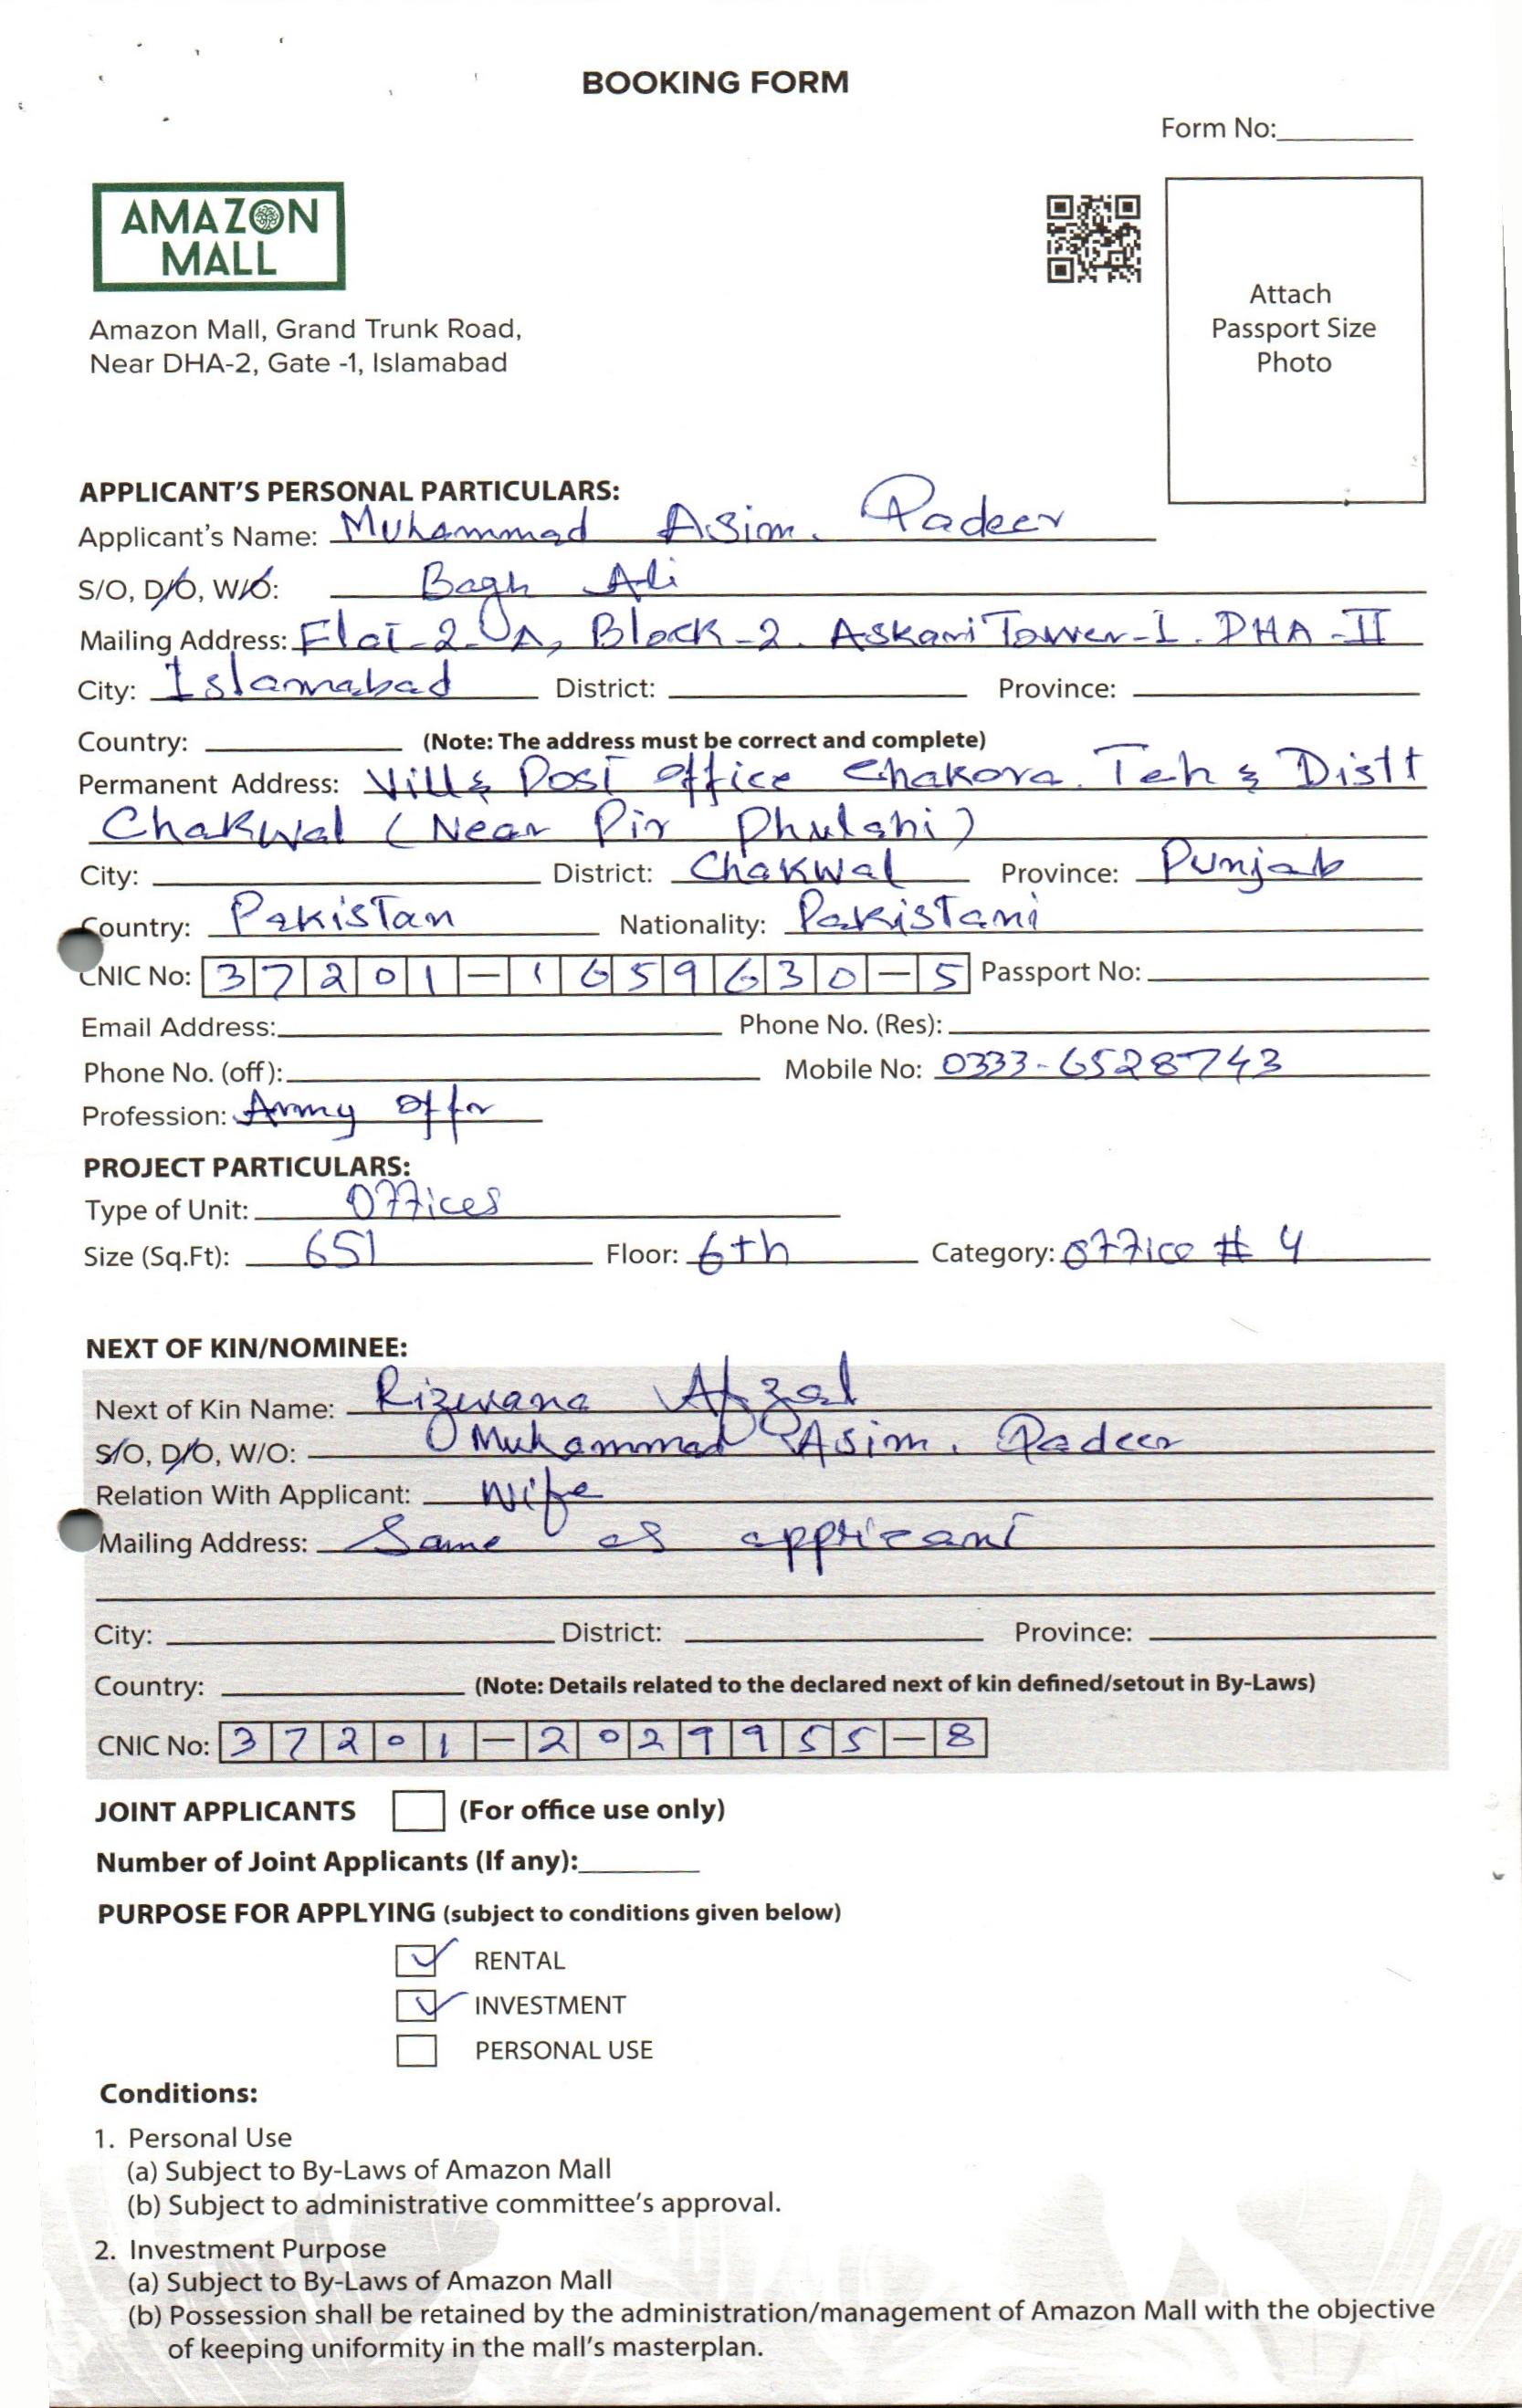 BOOKING FORM
Form No:
AMAZON
MALL
Amazon Mall, Grand Trunk Road,
Near DHA-2, Gate -1, Islamabad
Attach
Passport Size
Photo
APPLICANT'S PERSONAL PARTICULARS:
Applicant's Name: Muhammad Asim. Qadeer
S/O, D/O, W/O: Bagh Ali
Mailing Address: Flat-2-A, Block-2. Askari Tower-1. DHA-II
City: Islamabad District: Province:
Country: (Note: The address must be correct and complete)
Permanent Address: Vill & Post office Chakora. Teh & Distt
Chakwal (Near Pir Phulahi)
City: District: Chakwal Province: Punjab
Country: Pakistan Nationality: Pakistani
CNIC No: 37201-1659630-5 Passport No:
Email Address: Phone No. (Res):
Phone No. (off): Mobile No: 0333-6528743
Profession: Army Offr
PROJECT PARTICULARS:
Type of Unit: Offices
Size (Sq.Ft): 651 Floor: 6th Category: office # 4
NEXT OF KIN/NOMINEE:
Next of Kin Name: Rizwana Afzal
S/O, D/O, W/O: Muhammad Asim. Qadeer
Relation With Applicant: Wife
Mailing Address: Same as applicant
City: District: Province:
Country: (Note: Details related to the declared next of kin defined/setout in By-Laws)
CNIC No: 37201-2029955-8
JOINT APPLICANTS (For office use only)
Number of Joint Applicants (If any):
PURPOSE FOR APPLYING (subject to conditions given below)
RENTAL
INVESTMENT
PERSONAL USE
Conditions:
1. Personal Use
(a) Subject to By-Laws of Amazon Mall
(b) Subject to administrative committee's approval.
2. Investment Purpose
(a) Subject to By-Laws of Amazon Mall
(b) Possession shall be retained by the administration/management of Amazon Mall with the objective
of keeping uniformity in the mall's masterplan.